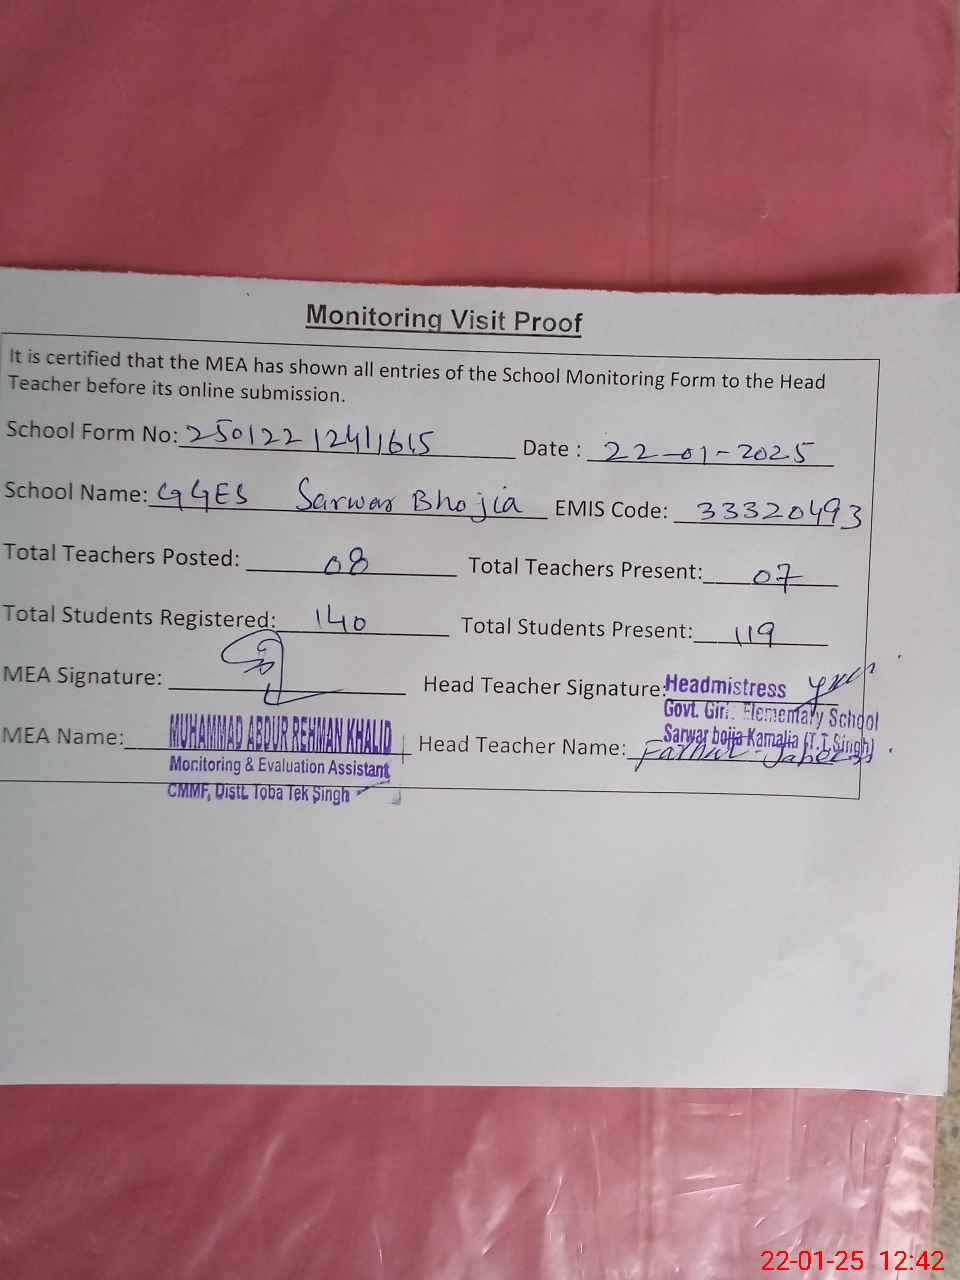 Monitoring Visit Proof
It is certified that the MEA has shown all entries of the School Monitoring Form to the Head
Teacher before its online submission.
School Form No: 25012212411615 Date : 22-01-2025
School Name: GGES Sarwar Bhojia EMIS Code: 33320493
Total Teachers Posted: 08 Total Teachers Present: 07
Total Students Registered: 140 Total Students Present: 119
MEA Signature: Head Teacher Signature: Headmistress
Govt. Girls Elementary School
Sarwar bojja Kamalia (T.T.Singh)
MEA Name: MUHAMMAD ABDUR REHMAN KHALID Head Teacher Name:
Monitoring & Evaluation Assistant
CMMF, Distt. Toba Tek Singh
22-01-25 12:42